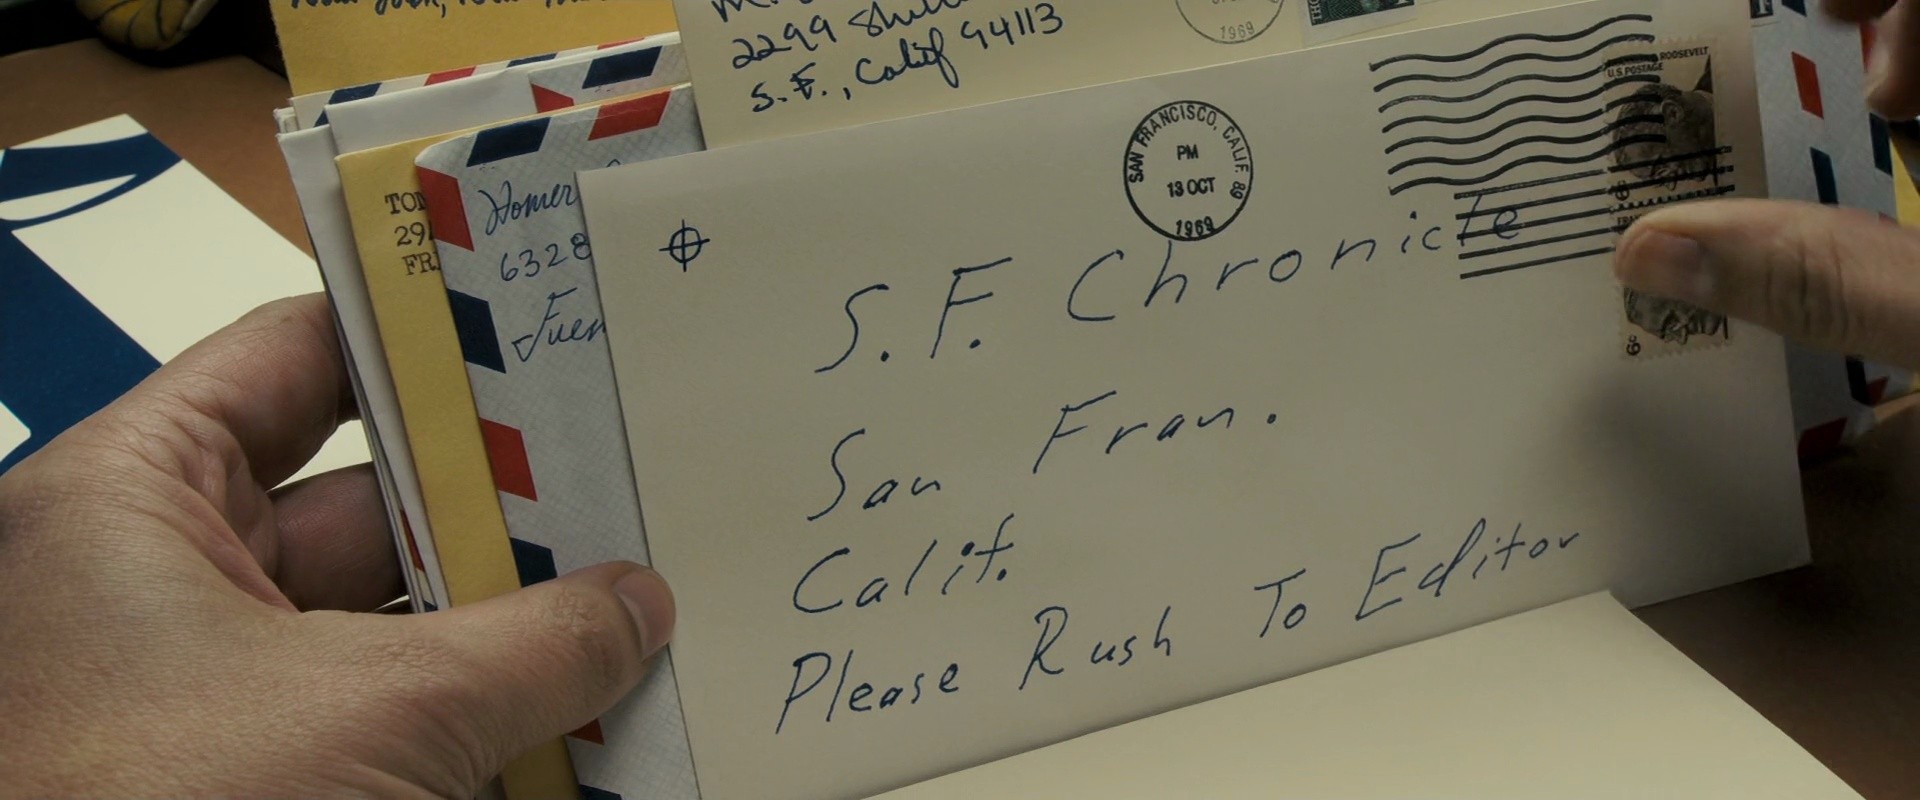 2299
S.F., Calif 94113
1969
TO
29
FR
Homer
6328
SAN FRANCISCO, CALIF 89
PM
13 OCT
1969
ROOSEVELT
U.S. POSTAGE
6c
6c
S.F. Chronicle
San Fran.
Calif.
Please Rush To Editor